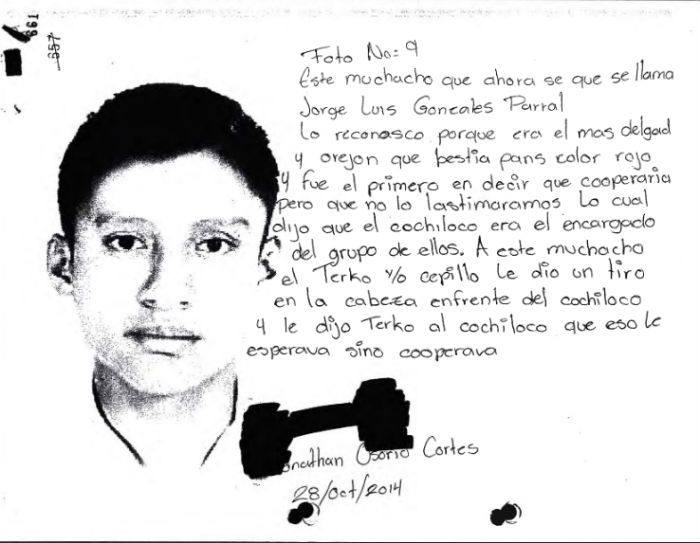 661
557
Foto No: 9
Este muchacho que ahora se que se llama
Jorge Luis Goncales Parral
Lo reconosco porque era el mas delgad
y orejon que bestia pans color rojo
y fue el primero en decir que cooperaria
pero que no lo lastimaramos Lo cual
dijo que el cochiloco era el encargado
del grupo de ellos. A este muchacho
el Terko y/o cepillo Le dio un tiro
en la cabeza enfrente del cochiloco
y le dijo Terko al cochiloco que eso le
esperava sino cooperava
Jonathan Osorio Cortes
28/oct/2014